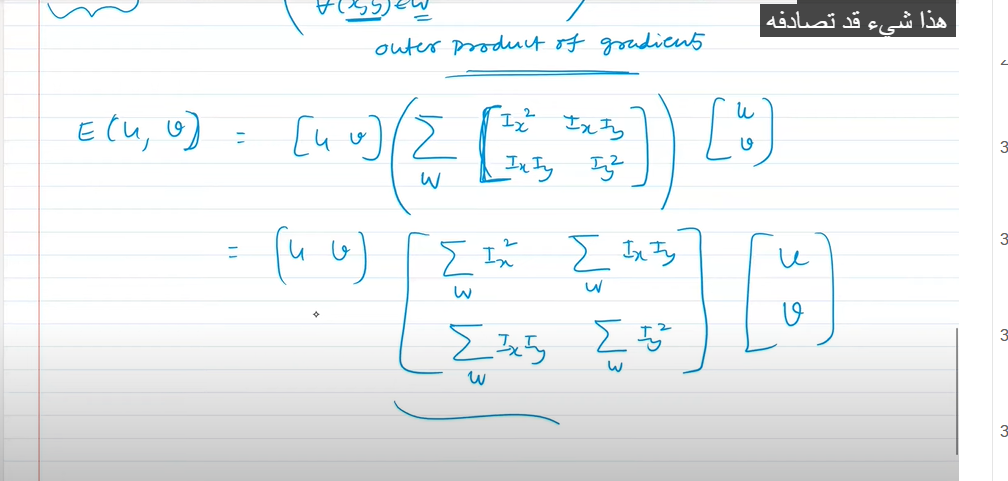 هذا شيء قد تصادفه
∀(x,y)∈W
outer product of gradients
E(u, v) = [u v] ( ∑_W [ I_x² I_xI_y ; I_xI_y I_y² ] ) [ u ; v ]
= [u v] [ ∑_W I_x² ∑_W I_xI_y ; ∑_W I_xI_y ∑_W I_y² ] [ u ; v ]